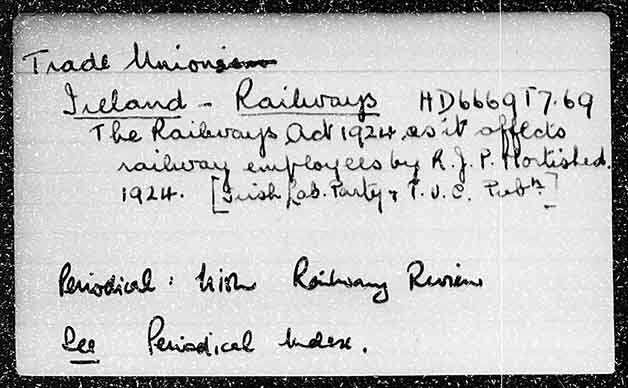 Trade Unions
Ireland - Railways HD6669 I7.69
The Railways Act 1924 as it affects
railway employees by R.J.P. Mortished.
1924. [Irish Lab. Party & T.U.C. Pubn.]
Periodical: Irish Railway Review
See Periodical Index.